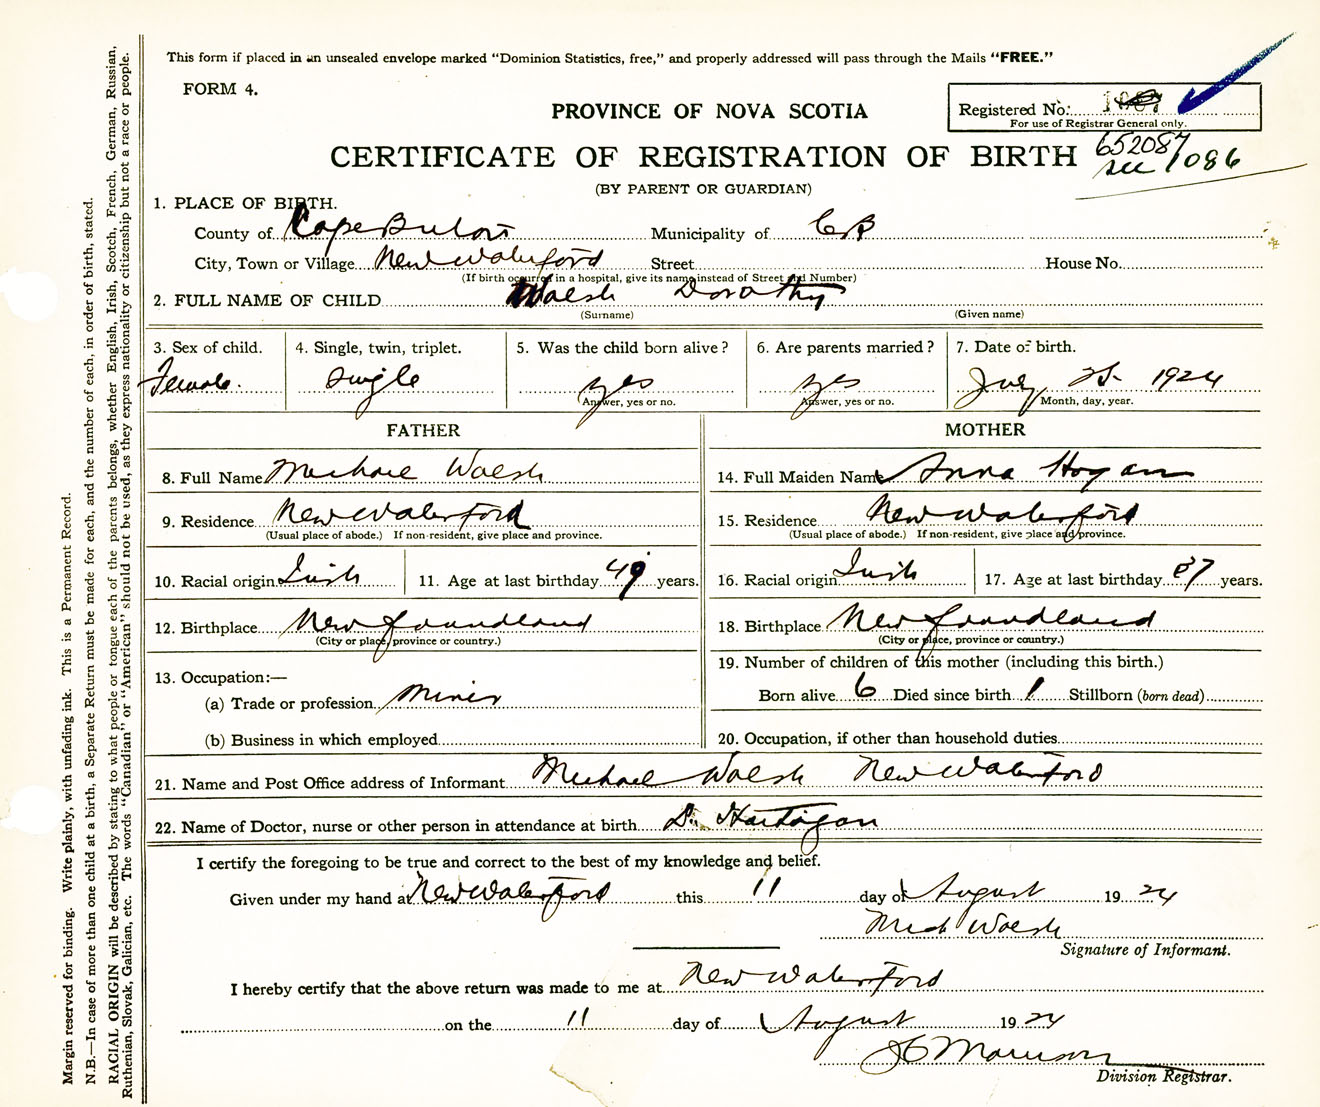 This form if placed in an unsealed envelope marked "Dominion Statistics, free," and properly addressed will pass through the Mails "FREE."
FORM 4.
PROVINCE OF NOVA SCOTIA
Registered No.
For use of Registrar General only.
CERTIFICATE OF REGISTRATION OF BIRTH
652087
see 1086
(BY PARENT OR GUARDIAN)
1. PLACE OF BIRTH.
County of Cape Breton Municipality of CB
City, Town or Village New Waterford Street House No.
(If birth occurred in a hospital, give its name instead of Street and Number)
2. FULL NAME OF CHILD Walsh Dorothy
(Surname) (Given name)
3. Sex of child. 4. Single, twin, triplet. 5. Was the child born alive? 6. Are parents married? 7. Date of birth.
Female. single yes yes July 25 1924
(Answer, yes or no. Answer, yes or no. Month, day, year.
FATHER MOTHER
8. Full Name Michael Walsh 14. Full Maiden Name Anna Hogan
9. Residence New Waterford 15. Residence New Waterford
(Usual place of abode.) If non-resident, give place and province. (Usual place of abode.) If non-resident, give place and province.
10. Racial origin Irish 11. Age at last birthday 49 years. 16. Racial origin Irish 17. Age at last birthday 37 years.
12. Birthplace Newfoundland 18. Birthplace Newfoundland
(City or place, province or country.) (City or place, province or country.)
13. Occupation:— 19. Number of children of this mother (including this birth.)
(a) Trade or profession Miner Born alive 6 Died since birth 1 Stillborn (born dead)
(b) Business in which employed 20. Occupation, if other than household duties
21. Name and Post Office address of Informant Michael Walsh New Waterford
22. Name of Doctor, nurse or other person in attendance at birth Dr. Hartigan
I certify the foregoing to be true and correct to the best of my knowledge and belief.
Given under my hand at New Waterford this 11 day of August 1924
Mich Walsh
Signature of Informant.
I hereby certify that the above return was made to me at New Waterford
on the 11 day of August 1924
Morrison
Division Registrar.
Margin reserved for binding. Write plainly, with unfading ink. This is a Permanent Record.
N.B.—In case of more than one child at a birth, a Separate Return must be made for each, and the number of each, in order of birth, stated.
RACIAL ORIGIN will be described by stating to what people or tongue each of the parents belongs, whether English, Irish, Scotch, French, German, Russian,
Ruthenian, Slovak, Galician, etc. The words "Canadian" or "American" should not be used, as they express nationality or citizenship but not a race or people.